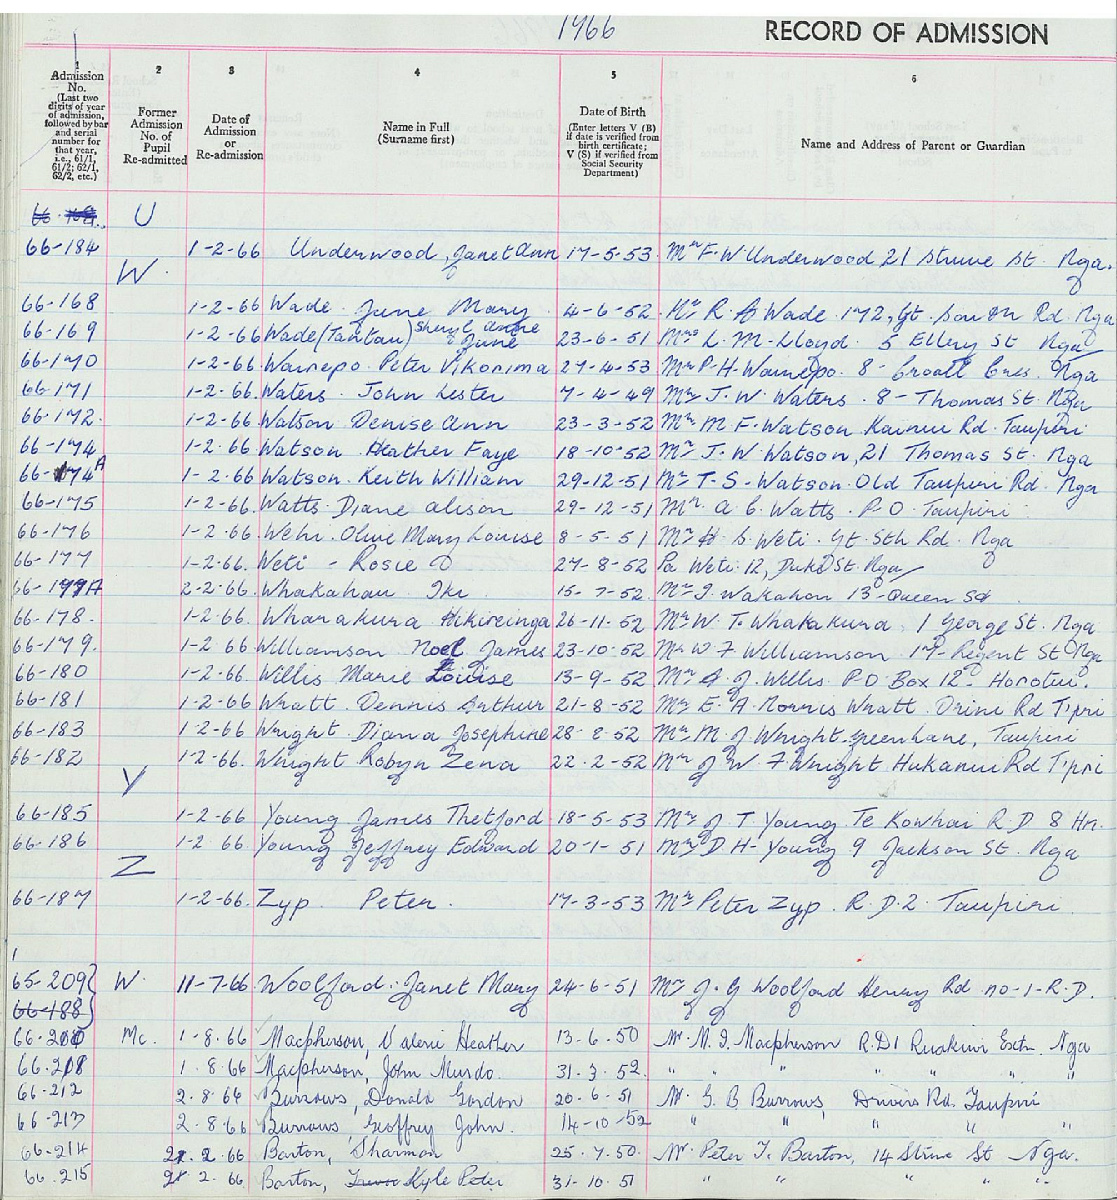 1966 RECORD OF ADMISSION
1 2 3 4 5 6
Admission No. (Last two digits of year of admission, followed by bar and serial number for that year, i.e., 61/1, 61/2; 62/1, 62/2, etc.)
Former Admission No. of Pupil Re-admitted
Date of Admission or Re-admission
Name in Full (Surname first)
Date of Birth (Enter letters V (B) if date is verified from birth certificate; V (S) if verified from Social Security Department)
Name and Address of Parent or Guardian
U
66-184 1-2-66 Underwood, Janet Ann 17-5-53 Mr F. W Underwood 21 Struve St. Nga.
W.
66-168 1-2-66 Wade June Mary 4-6-52 Mr R Wade 172, Gt. South Rd. Nga
66-169 1-2-66 Wade/(Tahtau) Sheryl Anne June 23-6-51 Mrs L. M. Lloyd. 5 Ellery St Nga
66-170 1-2-66 Wainepo Peter Vikorima 27-4-53 Mr P H. Wainepo. 8- Croall Cres. Nga
66-171 1-2-66 Waters. John Lester 7-4-49 Mr J. W. Waters. 8- Thomas St. Nga
66-172. 1-2-66 Watson Denise Ann 23-3-52 Mr M F. Watson Rd. Taupiri
66-174 1-2-66 Watson Heather Faye 18-10-52 Mr J. W Watson, 21 Thomas St. Nga
66-174A 1-2-66 Watson. Keith William 29-12-51 Mr T. S- Watson. Old Taupiri Rd. Nga
66-175 1-2-66. Watts. Diane Alison 29-12-51 Mr A C. Watts. P.O. Taupiri
66-176 1-2-66. Wehi. Olive Mary Louise 8-5-51 Mr H S. Weti. Gt. Sth Rd. Nga
66-177 1-2-66. Weti - Rosie O 27-8-52 Pa Weti. 12, Duke St. Nga
66-177A 2-2-66. Whakahau 15-7-52. Mr J. Wakahon 13-Queen St
66-178. 1-2-66. Wharakura Hikireinga 26-11-52 Mr W. T. Whatakura. 1 George St. Nga
66-179. 1-2-66 Williamson Noel James 23-10-52 Mr W F Williamson 17-Regent St Nga
66-180 1-2-66 Willis Marie Louise 13-9-52 Mr J. Willis. P O Box 12- Horotiu.
66-181 1-2-66 Wratt. Dennis Arthur 21-8-52 Mr E. A. Norris Wratt. Orini Rd T'piri
66-183 1-2-66. Wright. Diana Josephine 28-8-52 Mr M J Wright. Greenlane, Taupiri
66-182 1-2-66. Wright Robyn Zena 22-2-52 Mr J W. F Wright Hukanui Rd T'piri
Y
66-185 1-2-66 Young James Thetford 18-5-53 Mr J. T Young Te Kowhai R.D 8 Hn.
66-186 1-2 66. Young Jeffrey Edward 20-1-51 Mr D H- Young 9 Jackson St. Nga
Z
66-187 1-2-66. Zyp Peter. 17-3-53 Mr Peter Zyp. R.D.2. Taupiri.
65-209 W. 11-7-66 Woolford. Janet Mary 24-6-51 Mr J. G Woolford Henry Rd no-1-R.D.
66-188
66-210 Mc. 1-8-66 Macpherson, Valerie Heather 13-6-50 Mr. N. I. Macpherson R.D1 Ruakiwi Extn. Nga
66.211 1.8.66 Macpherson, John Murdo. 31.3.52. " " " " " "
66-212 2.8.66 Burrows, Donald Gordon 20-6-51 Mr. G. B Burrows, Rd. Taupiri
66-213 2.8.66 Burrows, Geoffrey John. 14-10-52 " " " " " "
66-214 2.66 Barton, Sharman 25.7.50. Mr. Peter T. Barton, 14 Struve St Nga.
66.215 2.66 Barton, Trevor Kyle Peter 31-10.51 " " " " "